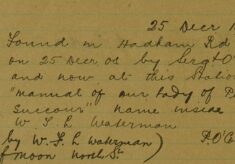 25 Decr 1
Found in Hadham Rd
on 25 Decr 08 by Sergt O
and now at this Station
"manual of our Lady of P
Succour" name inside
W. F. L Waterman
by W. F. L Waterman) P.O.C
7 Moon North St